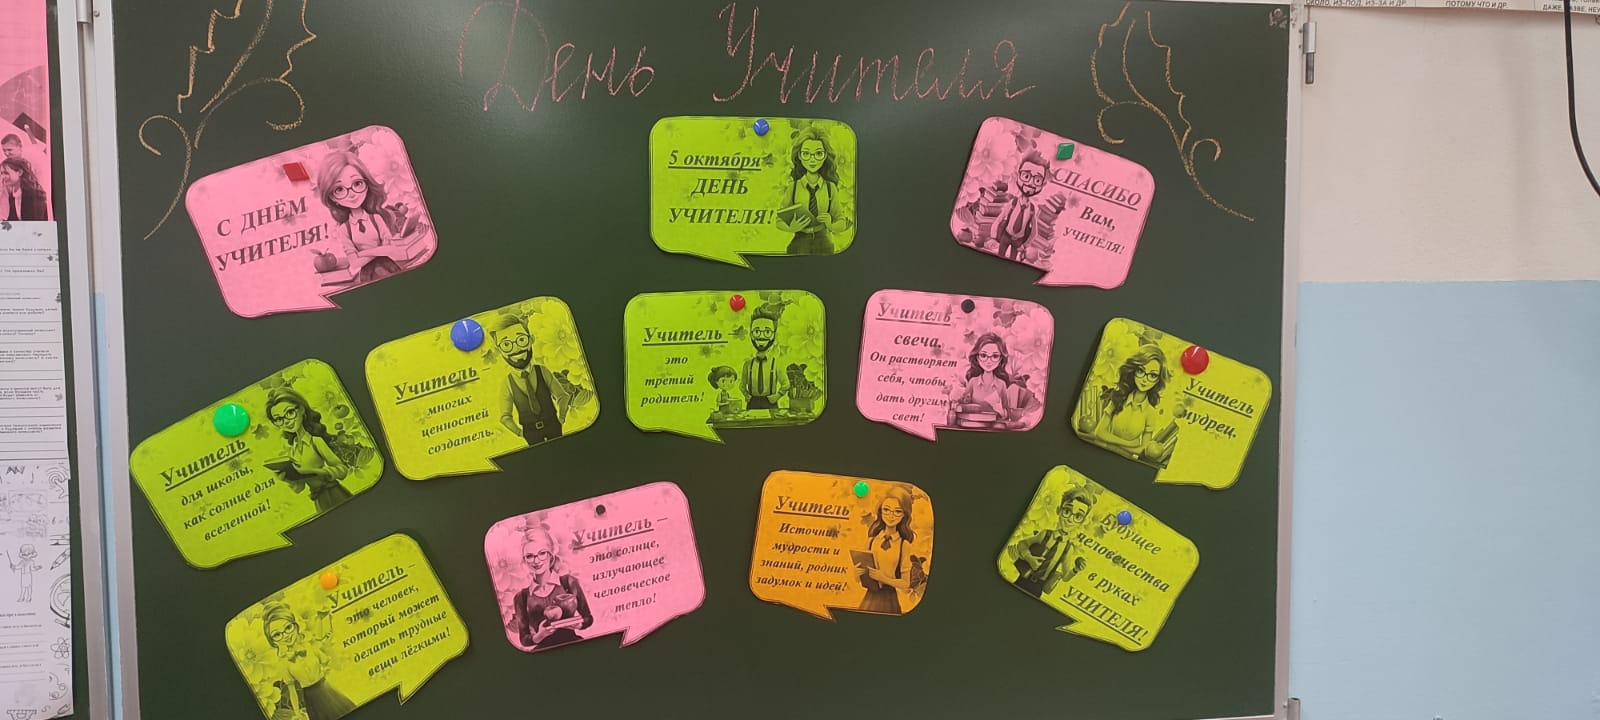 ПОТОМУ ЧТО И ДР.
День Учителя
С ДНЁМ
УЧИТЕЛЯ!
5 октября
ДЕНЬ
УЧИТЕЛЯ!
СПАСИБО
Вам,
УЧИТЕЛЯ!
Учитель
для школы,
как солнце для
вселенной!
Учитель –
многих
ценностей
создатель.
Учитель –
это
третий
родитель!
Учитель –
свеча.
Он растворяет
себя, чтобы
дать другим
свет!
Учитель
мудрец.
Учитель –
это человек,
который может
делать трудные
вещи лёгкими!
Учитель –
это солнце,
излучающее
человеческое
тепло!
Учитель
Источник
мудрости и
знаний, родник
задумок и идей!
Будущее
человечества
в руках
УЧИТЕЛЯ!